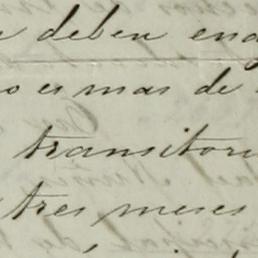 deben
o es mas de
transitori
tres meses